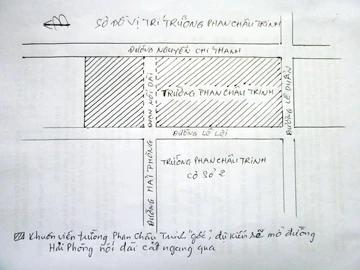 SƠ ĐỒ VỊ TRÍ TRƯỜNG PHAN CHÂU TRINH
ĐƯỜNG NGUYỄN CHÍ THANH
ĐOẠN NỐI DÀI
TRƯỜNG PHAN CHÂU TRINH
ĐƯỜNG LÊ DUẨN
ĐƯỜNG LÊ LỢI
ĐƯỜNG HẢI PHÒNG
TRƯỜNG PHAN CHÂU TRINH
CƠ SỞ 2
Khuôn viên trường Phan Châu Trinh "gốc", dự kiến sẽ mở đường
Hải Phòng nối dài cắt ngang qua